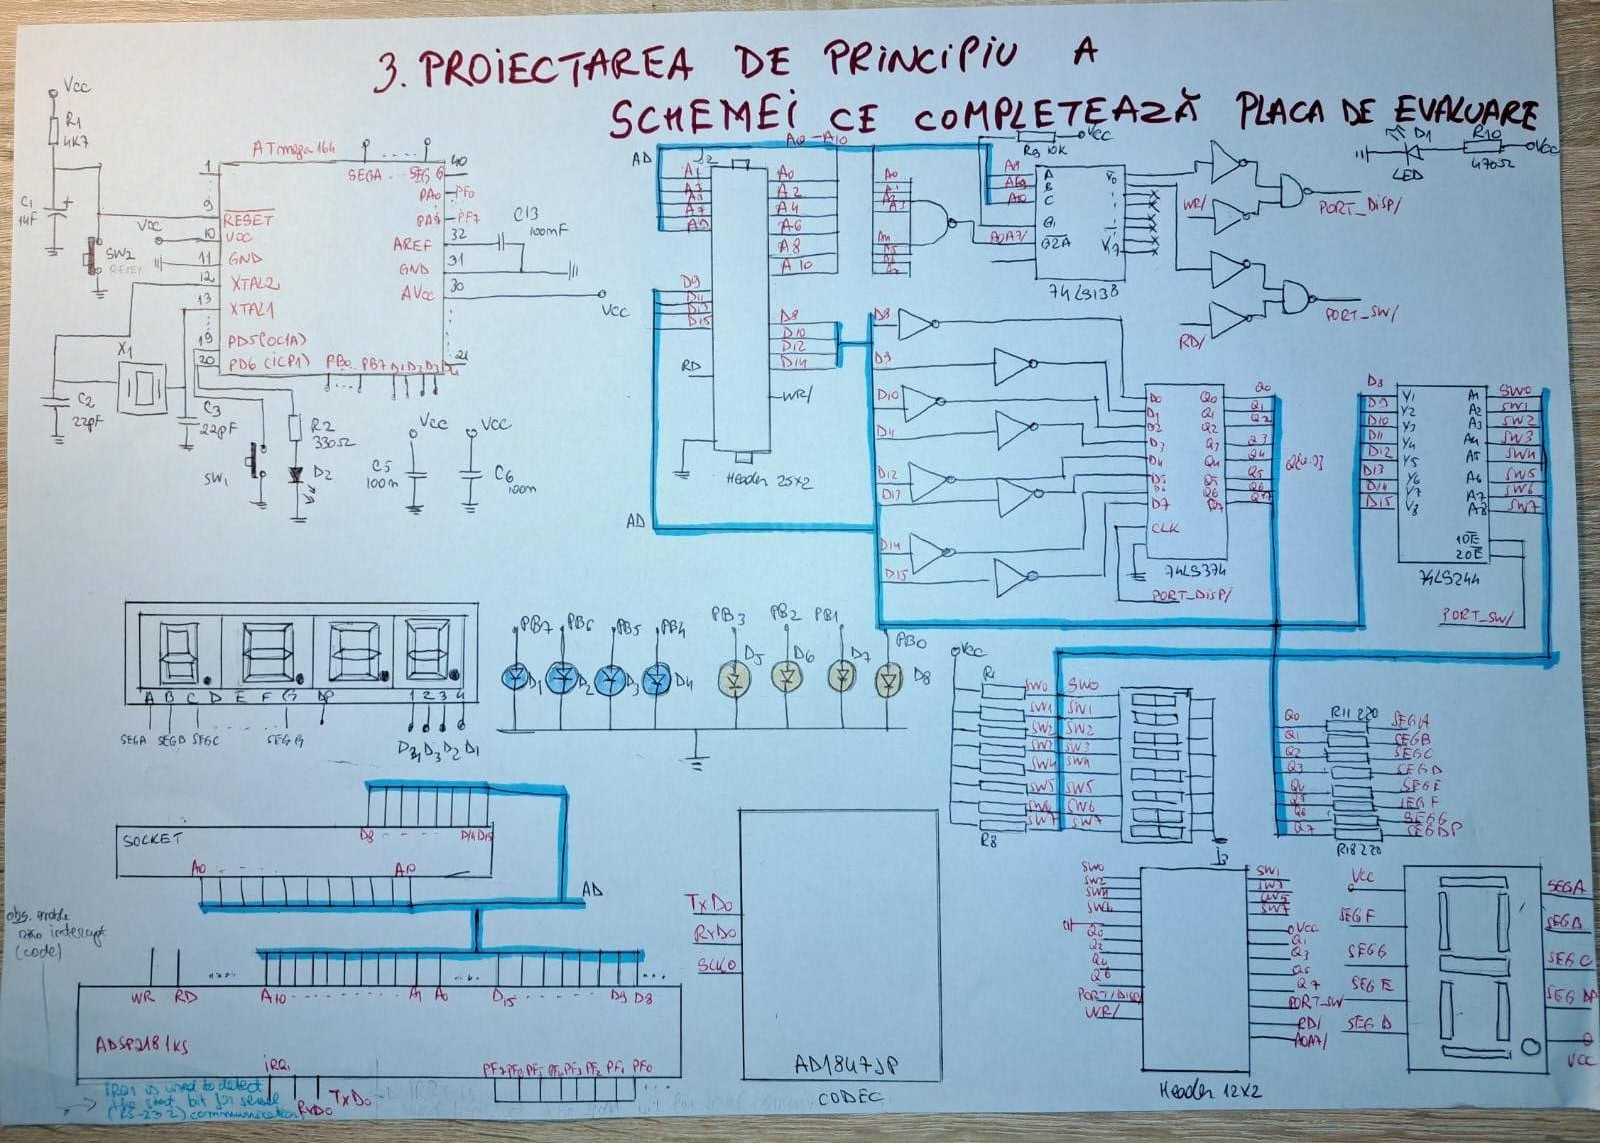 3. PROIECTAREA DE PRINCIPIU A
SCHEMEI CE COMPLETEAZĂ PLACA DE EVALUARE
Vcc
R1
4K7
C1
1µF
SW2
RESET
ATmega164
1
9
10
11
12
13
19
20
RESET
VCC
GND
XTAL2
XTAL1
PD5(OC1A)
PD6 (iCP1)
PB0 .. PB7 D1 D2 D3
SEGA ... SEG G
40
PA0 PF0
PA7 PF7
AREF 32
GND 31
AVcc 30
21
C13
100mF
Vcc
Vcc
X1
C2
22pF
C3
22pF
SW1
R2
330Ω
D2
Vcc
C5
100n
Vcc
C6
100n
AD
A0-A10
J2
A1
A3
A5
A7
A9
A0
A2
A4
A6
A8
A10
D9
D11
D13
D15
D8
D10
D12
D14
RD
WR/
Header 25x2
AD
R9 10K
Vcc
A8
A9
A10
A
B
C
G1
G2A
AOA7/
Y0
Y7
74LS138
WR/
RD/
PORT_DISP/
PORT_SW/
D1
LED
R10
470Ω
Vcc
D8
D9
D10
D11
D12
D13
D14
D15
D0
D1
D2
D3
D4
D5
D6
D7
CLK
Q0
Q1
Q2
Q3
Q4
Q5
Q6
Q7
74LS374
PORT_DISP/
D8
D9
D10
D11
D12
D13
D14
D15
Y1
Y2
Y3
Y4
Y5
Y6
Y7
Y8
A1
A2
A3
A4
A5
A6
A7
A8
SW0
SW1
SW2
SW3
SW4
SW5
SW6
SW7
1OE
2OE
74LS244
PORT_SW/
A B C D E F G DP 1 2 3 4
SEGA SEGB SEGC ...... SEGG
D4 D3 D2 D1
PB7 PB6 PB5 PB4 PB3 PB2 PB1 PB0
D1 D2 D3 D4 D5 D6 D7 D8
Vcc
R1
R8
SW0 SW0
SW1 SW1
SW2 SW2
SW3 SW3
SW4 SW4
SW5 SW5
SW6 SW6
SW7 SW7
Q0 R11 220 SEGA
Q1 SEGB
Q2 SEGC
Q3 SEGD
Q4 SEGE
Q5 SEGF
Q6 SEGG
Q7 SEGDP
R18 220
SOCKET
D8 - - - - D14 D15
A0 ...... A10
AD
obs. enable
interrupt
(code)
WR RD .... A10 ........ A1 A0 ... D15 ...... D9 D8 ...
ADSP2181KS
IRQ1
RxD0
TxD0
PF7 PF6 PF5 PF4 PF3 PF2 PF1 PF0
IRQ1 is used to detect
the start bit for serial
(RS-232) communication
TxD0
RxD0
SCK0
AD1847JP
CODEC
J3
SW0
SW2
SW4
SW6
Q0
Q2
Q4
Q6
PORT/DISP
WR/
SW1
SW3
SW5
SW7
Vcc
Q1
Q3
Q5
Q7
PORT_SW
RD/
AOA7/
Header 12x2
Vcc
SEG F
SEG G
SEG E
SEG D
SEG A
SEG B
SEG C
SEG DP
VCC